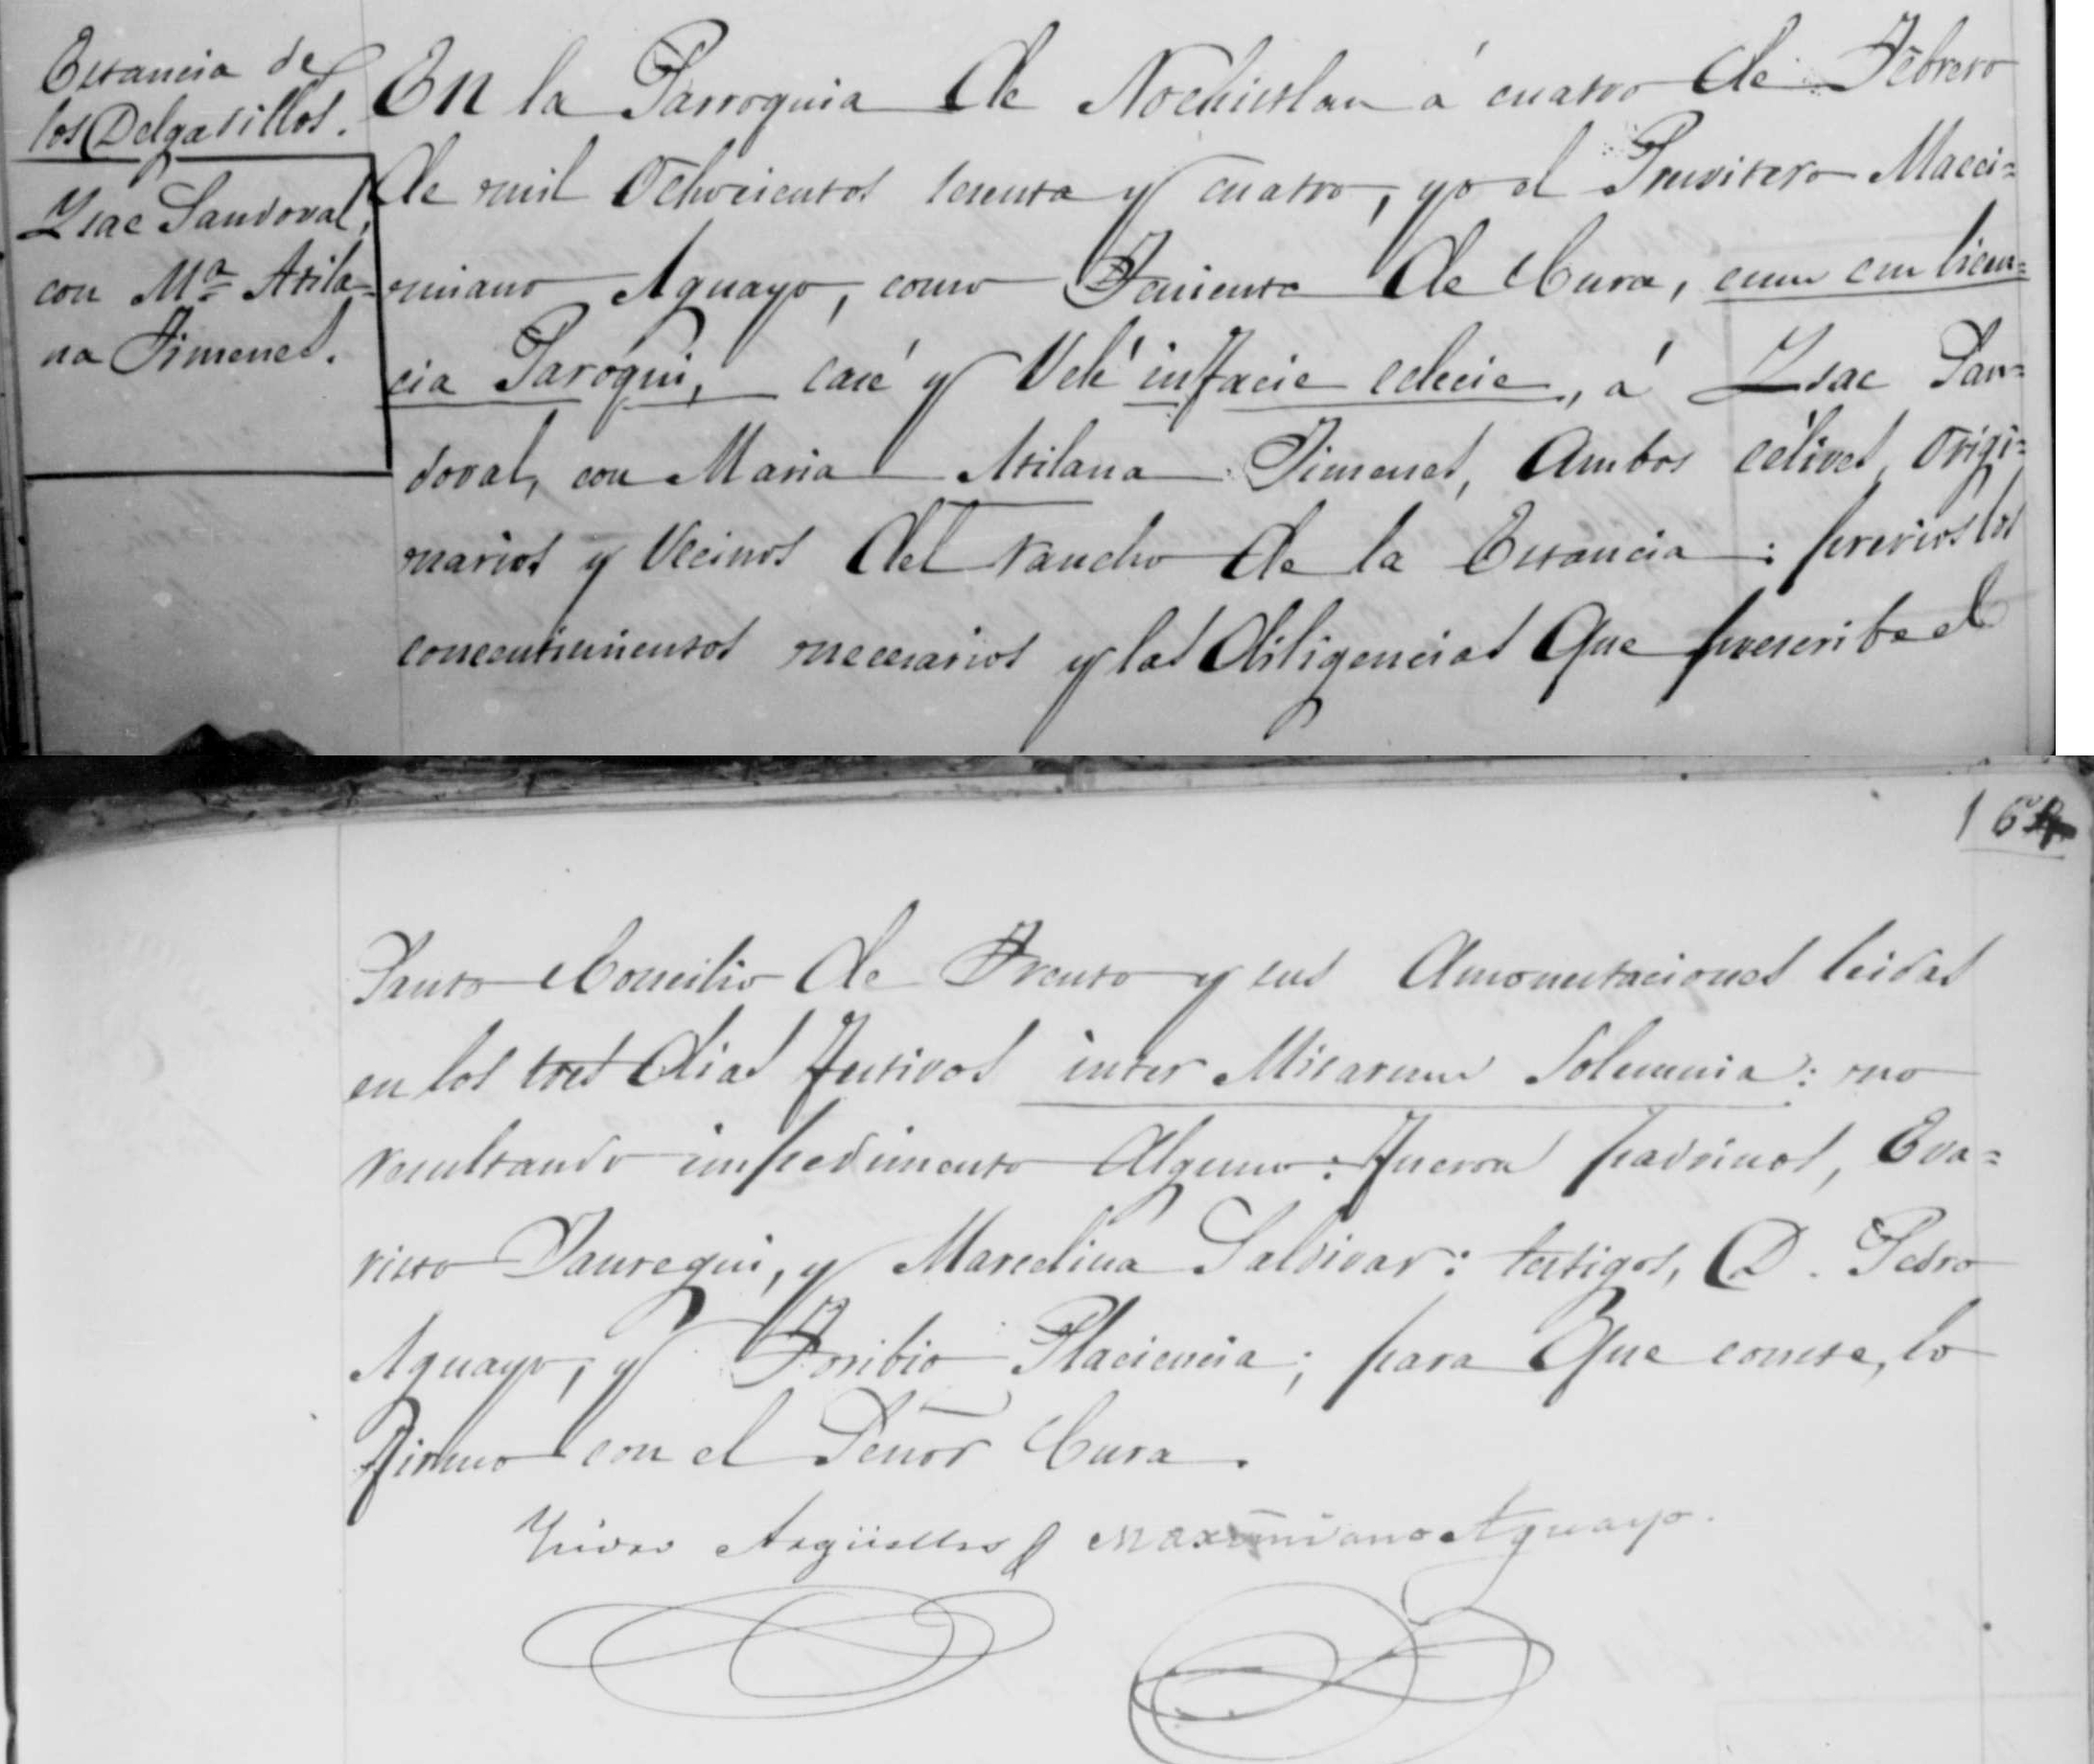 Estancia de
los Delgadillos.
Ysac Sandoval,
con Mª Atila=
na Jimenes.
En la Parroquia de Nochistlan á cuatro de Febrero
de mil Ochocientos sesenta y cuatro, yo el Presvitero Macci=
miano Aguayo, como Teniente de Cura, cum cm licen=
cia Paroqui, casé y Velé in facie eclecie, á Ysac San=
doval, con Maria Atilana Jimenes, Ambos célives, origi=
narios y Vecinos del rancho de la Estancia: previos los
concentimientos necesarios y las diligencias Que prescribe el
Santo Concilio de Trento y sus Amonestaciones leidas
en los tres dias festivos inter Misarum Solemnia: no
resultando impedimento Alguno: fueron padrinos, Eva=
risto Jauregui, y Marcelina Saldivar: testigos, D. Pedro
Aguayo, y Toribio Placiencia; para Que conste, lo
firmo con el Señor Cura.
Argüelles Maximiano Aguayo.